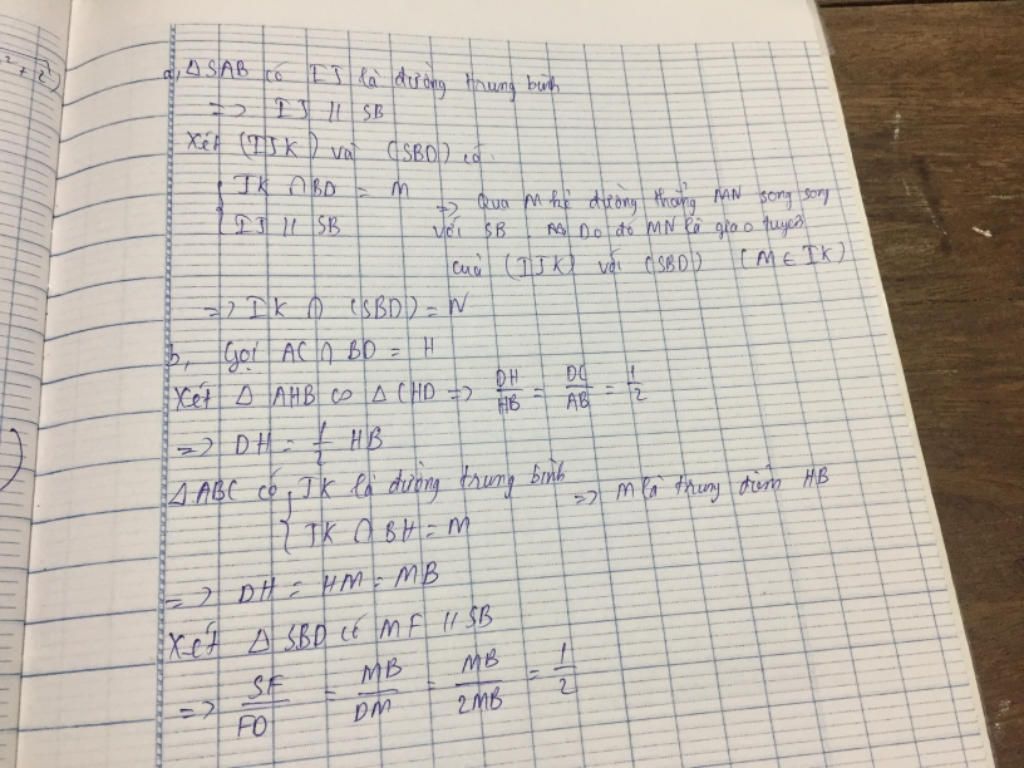 a, ΔSAB có IJ là đường trung bình
=> IJ // SB
Xét (IJK) và (SBD) có
{ IK ∩ BD = M
{ IJ // SB
=> Qua M kẻ đường thẳng MN song song
với SB Do đó MN là giao tuyến
của (IJK) với (SBD) (M ∈ IK)
=> IK ∩ (SBD) = N
b, Gọi AC ∩ BD = H
Xét Δ AHB ∽ Δ CHD => DH/HB = DC/AB = 1/2
=> DH = 1/2 HB
ΔABC có { IK là đường trung bình
{ IK ∩ BH = M
=> M là trung điểm HB
=> DH = HM = MB
Xét Δ SBD có MF // SB
=> SF/FD = MB/DM = MB/2MB = 1/2